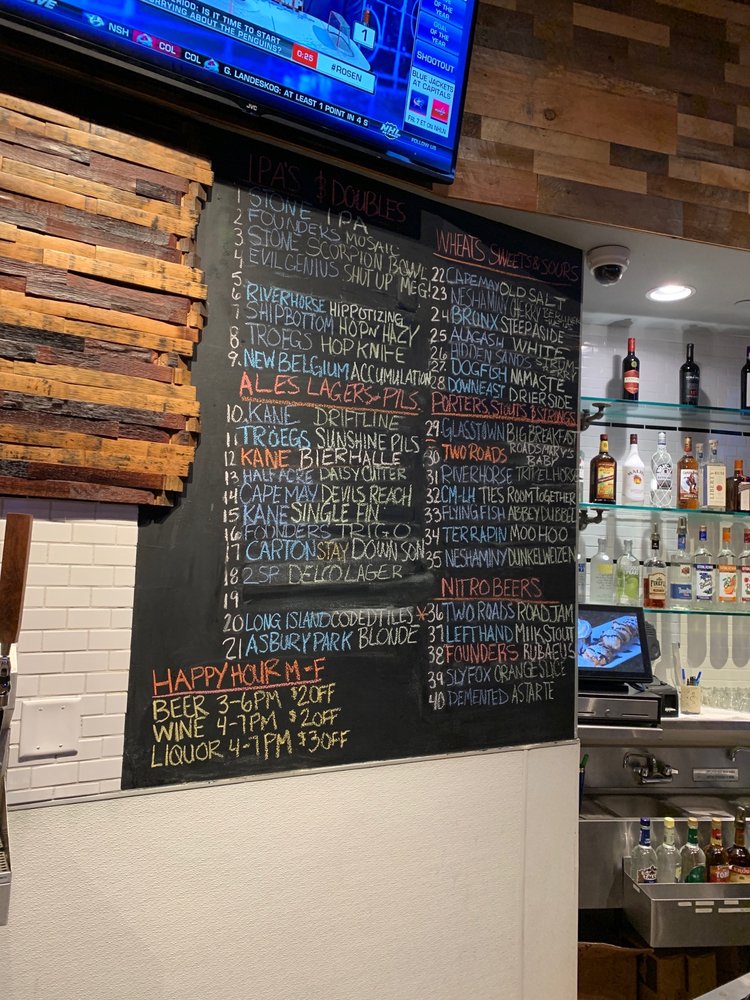 PERIOD: IS IT TIME TO START
WORRYING ABOUT THE PENGUINS?
0:25
1
#ROSEN
OF THE YEAR
GOAL
OF THE
YEAR
SHOOTOUT
BLUE JACKETS
AT CAPITALS
FRI. 7 ET ON NHLN
FOLLOW US
NSH
COL
COL
G. LANDESKOG: AT LEAST 1 POINT IN 4 S
NHL
JVC
IPA'S $ DOUBLES
1 STONE IPA
2 FOUNDERS MOSAIC
3 STONE SCORPION BOWL
4 EVIL GENIUS SHUT UP MEG!
5
6 RIVERHORSE HIPPOTIZING
7 SHIPBOTTOM HOP N HAZY
8 TROEGS HOP KNIFE
9. NEW BELGIUM ACCUMULATION
ALES LAGERS & PILS
10. KANE DRIFTLINE
11 TRÖEGS SUNSHINE PILS
12 KANE BIERHALLE
13 HALF ACRE DAISY CUTTER
14 CAPE MAY DEVILS REACH
15 KANE SINGLE FIN
16 FOUNDERS TRIGO
17 CARTON STAY DOWN SON
18 2SP DELCO LAGER
19
20 LONG ISLAND CODED TILES
21 ASBURY PARK BLONDE
HAPPY HOUR M-F
BEER 3-6PM $2 OFF
WINE 4-7PM $2 OFF
LIQUOR 4-7PM $3 OFF
WHEATS SWEETS & SOURS
22 CAPE MAY OLD SALT
23 NESHAMINY CHERRY
24 BRONX STEEPASIDE
25 ALAGASH WHITE
26 HIDDEN SANDS
27 DOGFISH NAMASTÉ
28 DOWNEAST DRIERSIDE
PORTERS, STOUTS, & STRONGS
29 GLASSTOWN BIG BREAKFAST
30 TWO ROADS ROADSMARY'S BABY
31 RIVERHORSE TRIPEL HORSE
32 CM-LH TIES ROOM TOGETHER
33 FLYING FISH ABBEY DUBBEL
34 TERRAPIN MOO HOO
35 NESHAMINY DUNKELWEIZEN
NITRO BEERS
*36 TWO ROADS ROAD JAM
37 LEFTHAND MILK STOUT
38 FOUNDERS RUBAEUS
39 SLY FOX ORANGE SLICE
40 DEMENTED ASTARTE